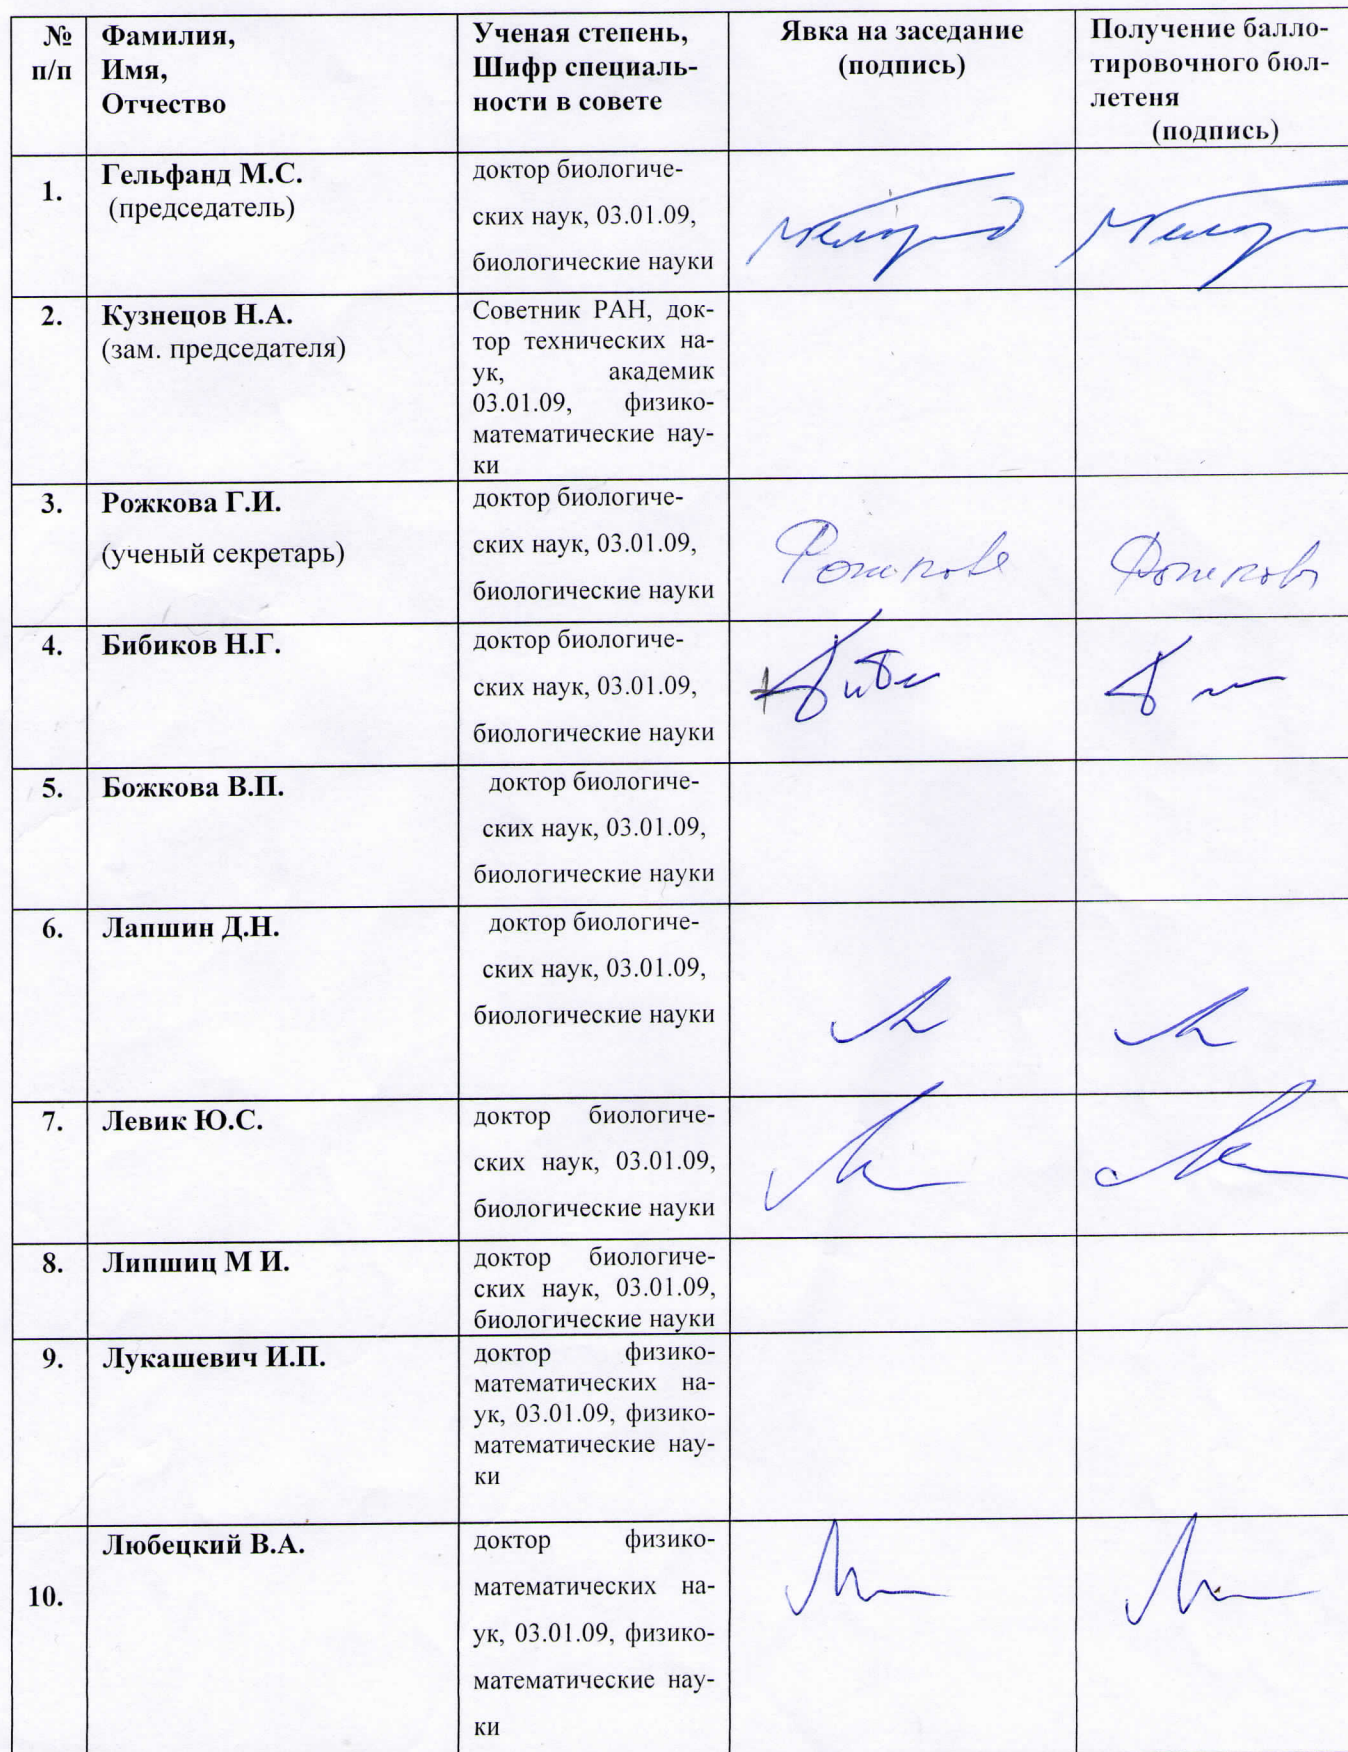 №
п/п
Фамилия,
Имя,
Отчество
Ученая степень,
Шифр специаль-
ности в совете
Явка на заседание
(подпись)
Получение балло-
тировочного бюл-
летеня
(подпись)
1.
Гельфанд М.С.
(председатель)
доктор биологиче-
ских наук, 03.01.09,
биологические науки
2.
Кузнецов Н.А.
(зам. председателя)
Советник РАН, док-
тор технических на-
ук, академик
03.01.09, физико-
математические нау-
ки
3.
Рожкова Г.И.
(ученый секретарь)
доктор биологиче-
ских наук, 03.01.09,
биологические науки
4.
Бибиков Н.Г.
доктор биологиче-
ских наук, 03.01.09,
биологические науки
5.
Божкова В.П.
доктор биологиче-
ских наук, 03.01.09,
биологические науки
6.
Лапшин Д.Н.
доктор биологиче-
ских наук, 03.01.09,
биологические науки
7.
Левик Ю.С.
доктор биологиче-
ских наук, 03.01.09,
биологические науки
8.
Липшиц М И.
доктор биологиче-
ских наук, 03.01.09,
биологические науки
9.
Лукашевич И.П.
доктор физико-
математических на-
ук, 03.01.09, физико-
математические нау-
ки
10.
Любецкий В.А.
доктор физико-
математических на-
ук, 03.01.09, физико-
математические нау-
ки